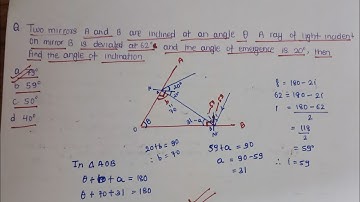 Q. Two mirrors A and B are inclined at an angle θ. A ray of light incident
on mirror B is deviated at 62° and the angle of emergence is 20°, then
find the angle of inclination.
b 59°
c 50°
d 40°
A
20°
70
31
O
θ
B
20+b = 90
∴ b = 70
59+a = 90
a = 90-59
= 31
In △ AOB
θ + b + a = 180
θ + 70 + 31 = 180
δ = 180 - 2i
62 = 180 - 2i
i = 180 - 62
2
= 118
2
= 59°
∴ i = 59